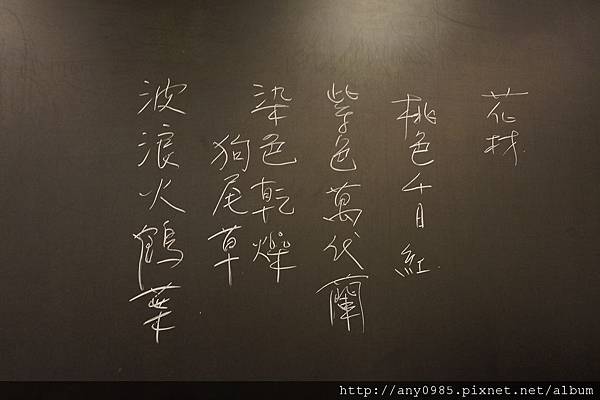 花材
桃色千日紅
紫色萬代蘭
染色乾燥
狗尾草
波浪火鶴葉
http://any0985.pixnet.net/album